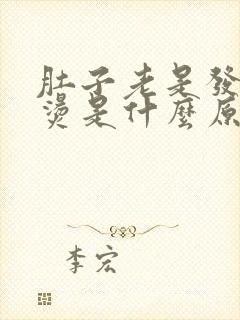 肚子老是發
燙是什麼原
李宏